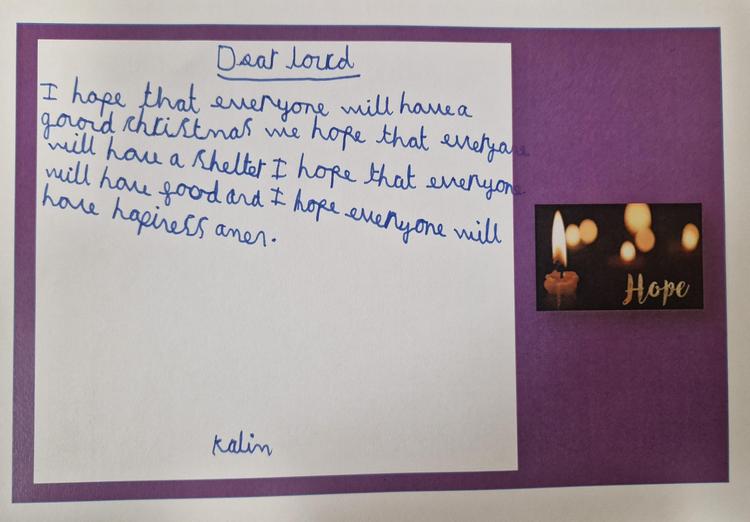 Dear lord
I hope that everyone will have a
goord christmas we hope that everyone
will have a shelter I hope that everyone
will have food and I hope everyone will
have hapiness amen.
Hope
Kalin